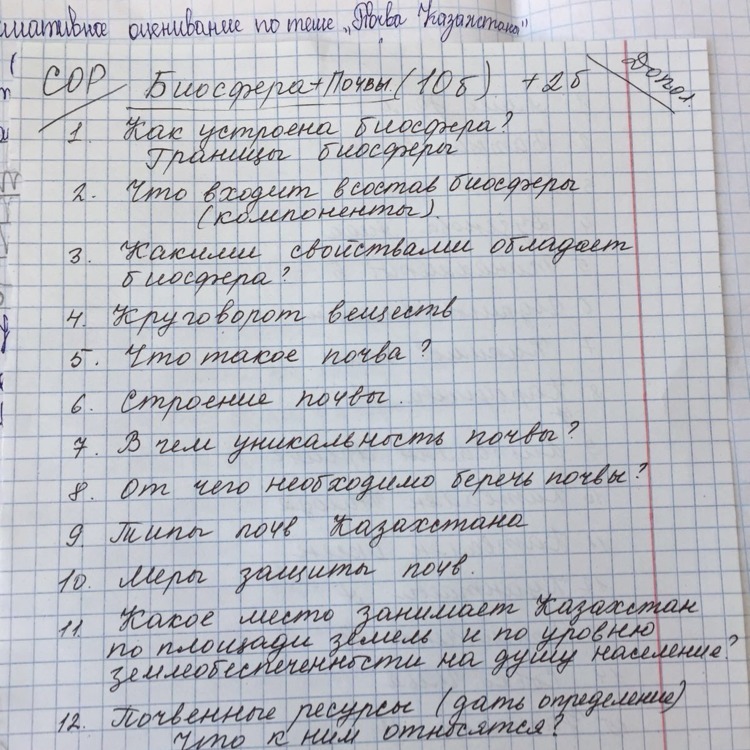 оценивание по теме „Почва Казахстана"
СОР Биосфера+Почвы. (10б) +2б Допол.
1. Как устроена биосфера?
Границы биосферы
2. Что входит в состав биосферы
(компоненты).
3. Какими свойствами обладает
биосфера?
4. Круговорот веществ
5. Что такое почва?
6. Строение почвы.
7. В чем уникальность почвы?
8. От чего необходимо беречь почвы?
9 Типы почв Казахстана
10. Меры защиты почв.
11. Какое место занимает Казахстан
по площади земель и по уровню
землеобеспеченности на душу население?
12. Почвенные ресурсы (дать определение)
Что к ним относятся?